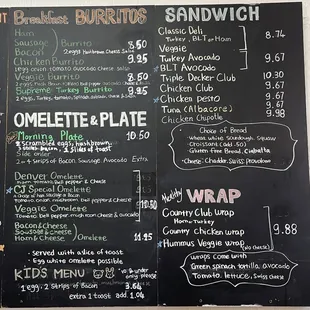 Breakfast BURRITOS
Ham
Sausage Burrito 8.50
Bacon 2 eggs Cheese Salsa
Chicken Burrito 9.25
Veggie Burrito 8.50
Supreme Turkey Burrito 9.25
OMELETTE & PLATE
Morning Plate 10.50
2 scrambled eggs, hashbrown
2 slices of toast
Side order
2-4 strips of Bacon, Sausage, Avocado Extra
Denver Omelette
Ham, tomato, bell pepper & Cheese
CJ Special Omelette
Veggie Omelette 10.50
Tomato, bell pepper, mushroom, cheese & avocado
Bacon & cheese
Sausage & cheese Omelette
Ham & Cheese 11.95
- Served with a slice of toast
- Egg white omelette possible
KIDS MENU
1 egg, 2 strips of Bacon 3.64
extra 1 toast add 1.04
SANDWICH
Classic Deli 8.74
Turkey, BLT or Ham
Veggie
Turkey Avocado 9.67
BLT Avocado
Triple Decker Club 10.30
Chicken Club 9.67
Chicken Pesto 9.67
Tuna (Albacore) 9.98
Chicken Chipotle
Choice of Bread
Wheat, white, Sourdough, Squaw
Croissant (add .50)
Gluten free Bread, Ciabatta
Cheese: Cheddar, Swiss, provolone
WRAP
Country Club wrap
Ham & Turkey
Country chicken wrap 9.88
Hummus Veggie wrap
(No cheese)
wraps come with
Green spinach tortilla, avocado
Tomato, lettuce, Swiss cheese